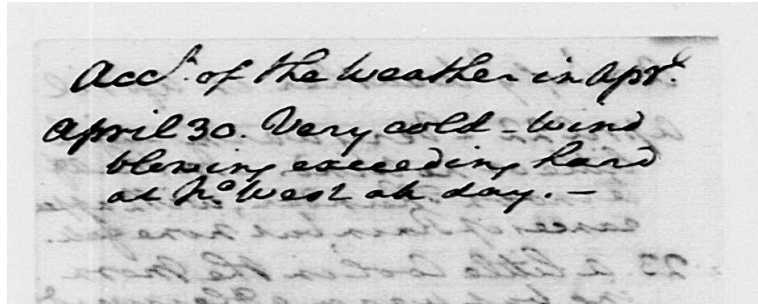 Acct. of the Weather in Aprl.
April 30. Very cold - Wind
blowing exceeding hard
at No. West all day. —